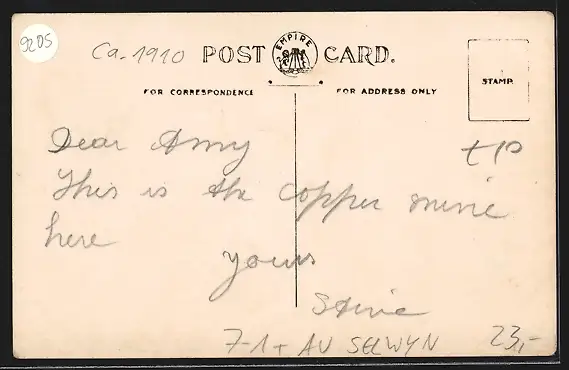 9205
Ca. 1910
POST CARD.
EMPIRE
FOR CORRESPONDENCE
FOR ADDRESS ONLY
STAMP.
Dear Amy
This is the copper mine
here
yours
7-1+ AV SELWYN
23,-